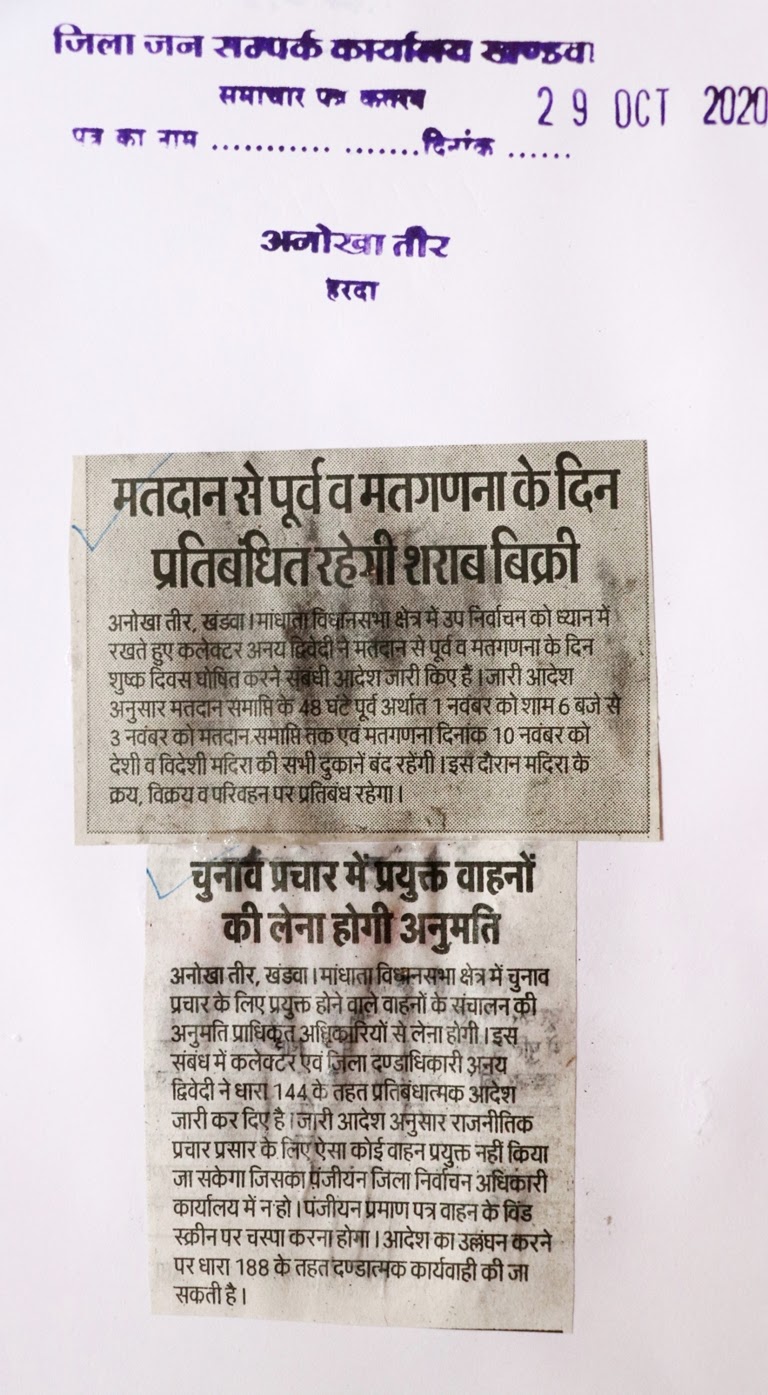 जिला जन सम्पर्क कार्यालय खण्डवा
समाचार पत्र कतरन
29 OCT 2020
पत्र का नाम ........... .......दिनांक ......
अनोखा तीर
हरदा
मतदान से पूर्व व मतगणना के दिन
प्रतिबंधित रहेगी शराब बिक्री
अनोखा तीर, खंडवा। मांधाता विधानसभा क्षेत्र में उप निर्वाचन को ध्यान में
रखते हुए कलेक्टर अनय द्विवेदी ने मतदान से पूर्व व मतगणना के दिन
शुष्क दिवस घोषित करने संबंधी आदेश जारी किए हैं। जारी आदेश
अनुसार मतदान समाप्ति के 48 घंटे पूर्व अर्थात 1 नवंबर को शाम 6 बजे से
3 नवंबर को मतदान समाप्ति तक एवं मतगणना दिनांक 10 नवंबर को
देशी व विदेशी मदिरा की सभी दुकानें बंद रहेंगी। इस दौरान मदिरा के
क्रय, विक्रय व परिवहन पर प्रतिबंध रहेगा।
चुनाव प्रचार में प्रयुक्त वाहनों
की लेना होगी अनुमति
अनोखा तीर, खंडवा। मांधाता विधानसभा क्षेत्र में चुनाव
प्रचार के लिए प्रयुक्त होने वाले वाहनों के संचालन की
अनुमति प्राधिकृत अधिकारियों से लेना होगी। इस
संबंध में कलेक्टर एवं जिला दण्डाधिकारी अनय
द्विवेदी ने धारा 144 के तहत प्रतिबंधात्मक आदेश
जारी कर दिए है। जारी आदेश अनुसार राजनीतिक
प्रचार प्रसार के लिए ऐसा कोई वाहन प्रयुक्त नहीं किया
जा सकेगा जिसका पंजीयन जिला निर्वाचन अधिकारी
कार्यालय में न हो। पंजीयन प्रमाण पत्र वाहन के विंड
स्क्रीन पर चस्पा करना होगा। आदेश का उल्लंघन करने
पर धारा 188 के तहत दण्डात्मक कार्यवाही की जा
सकती है।